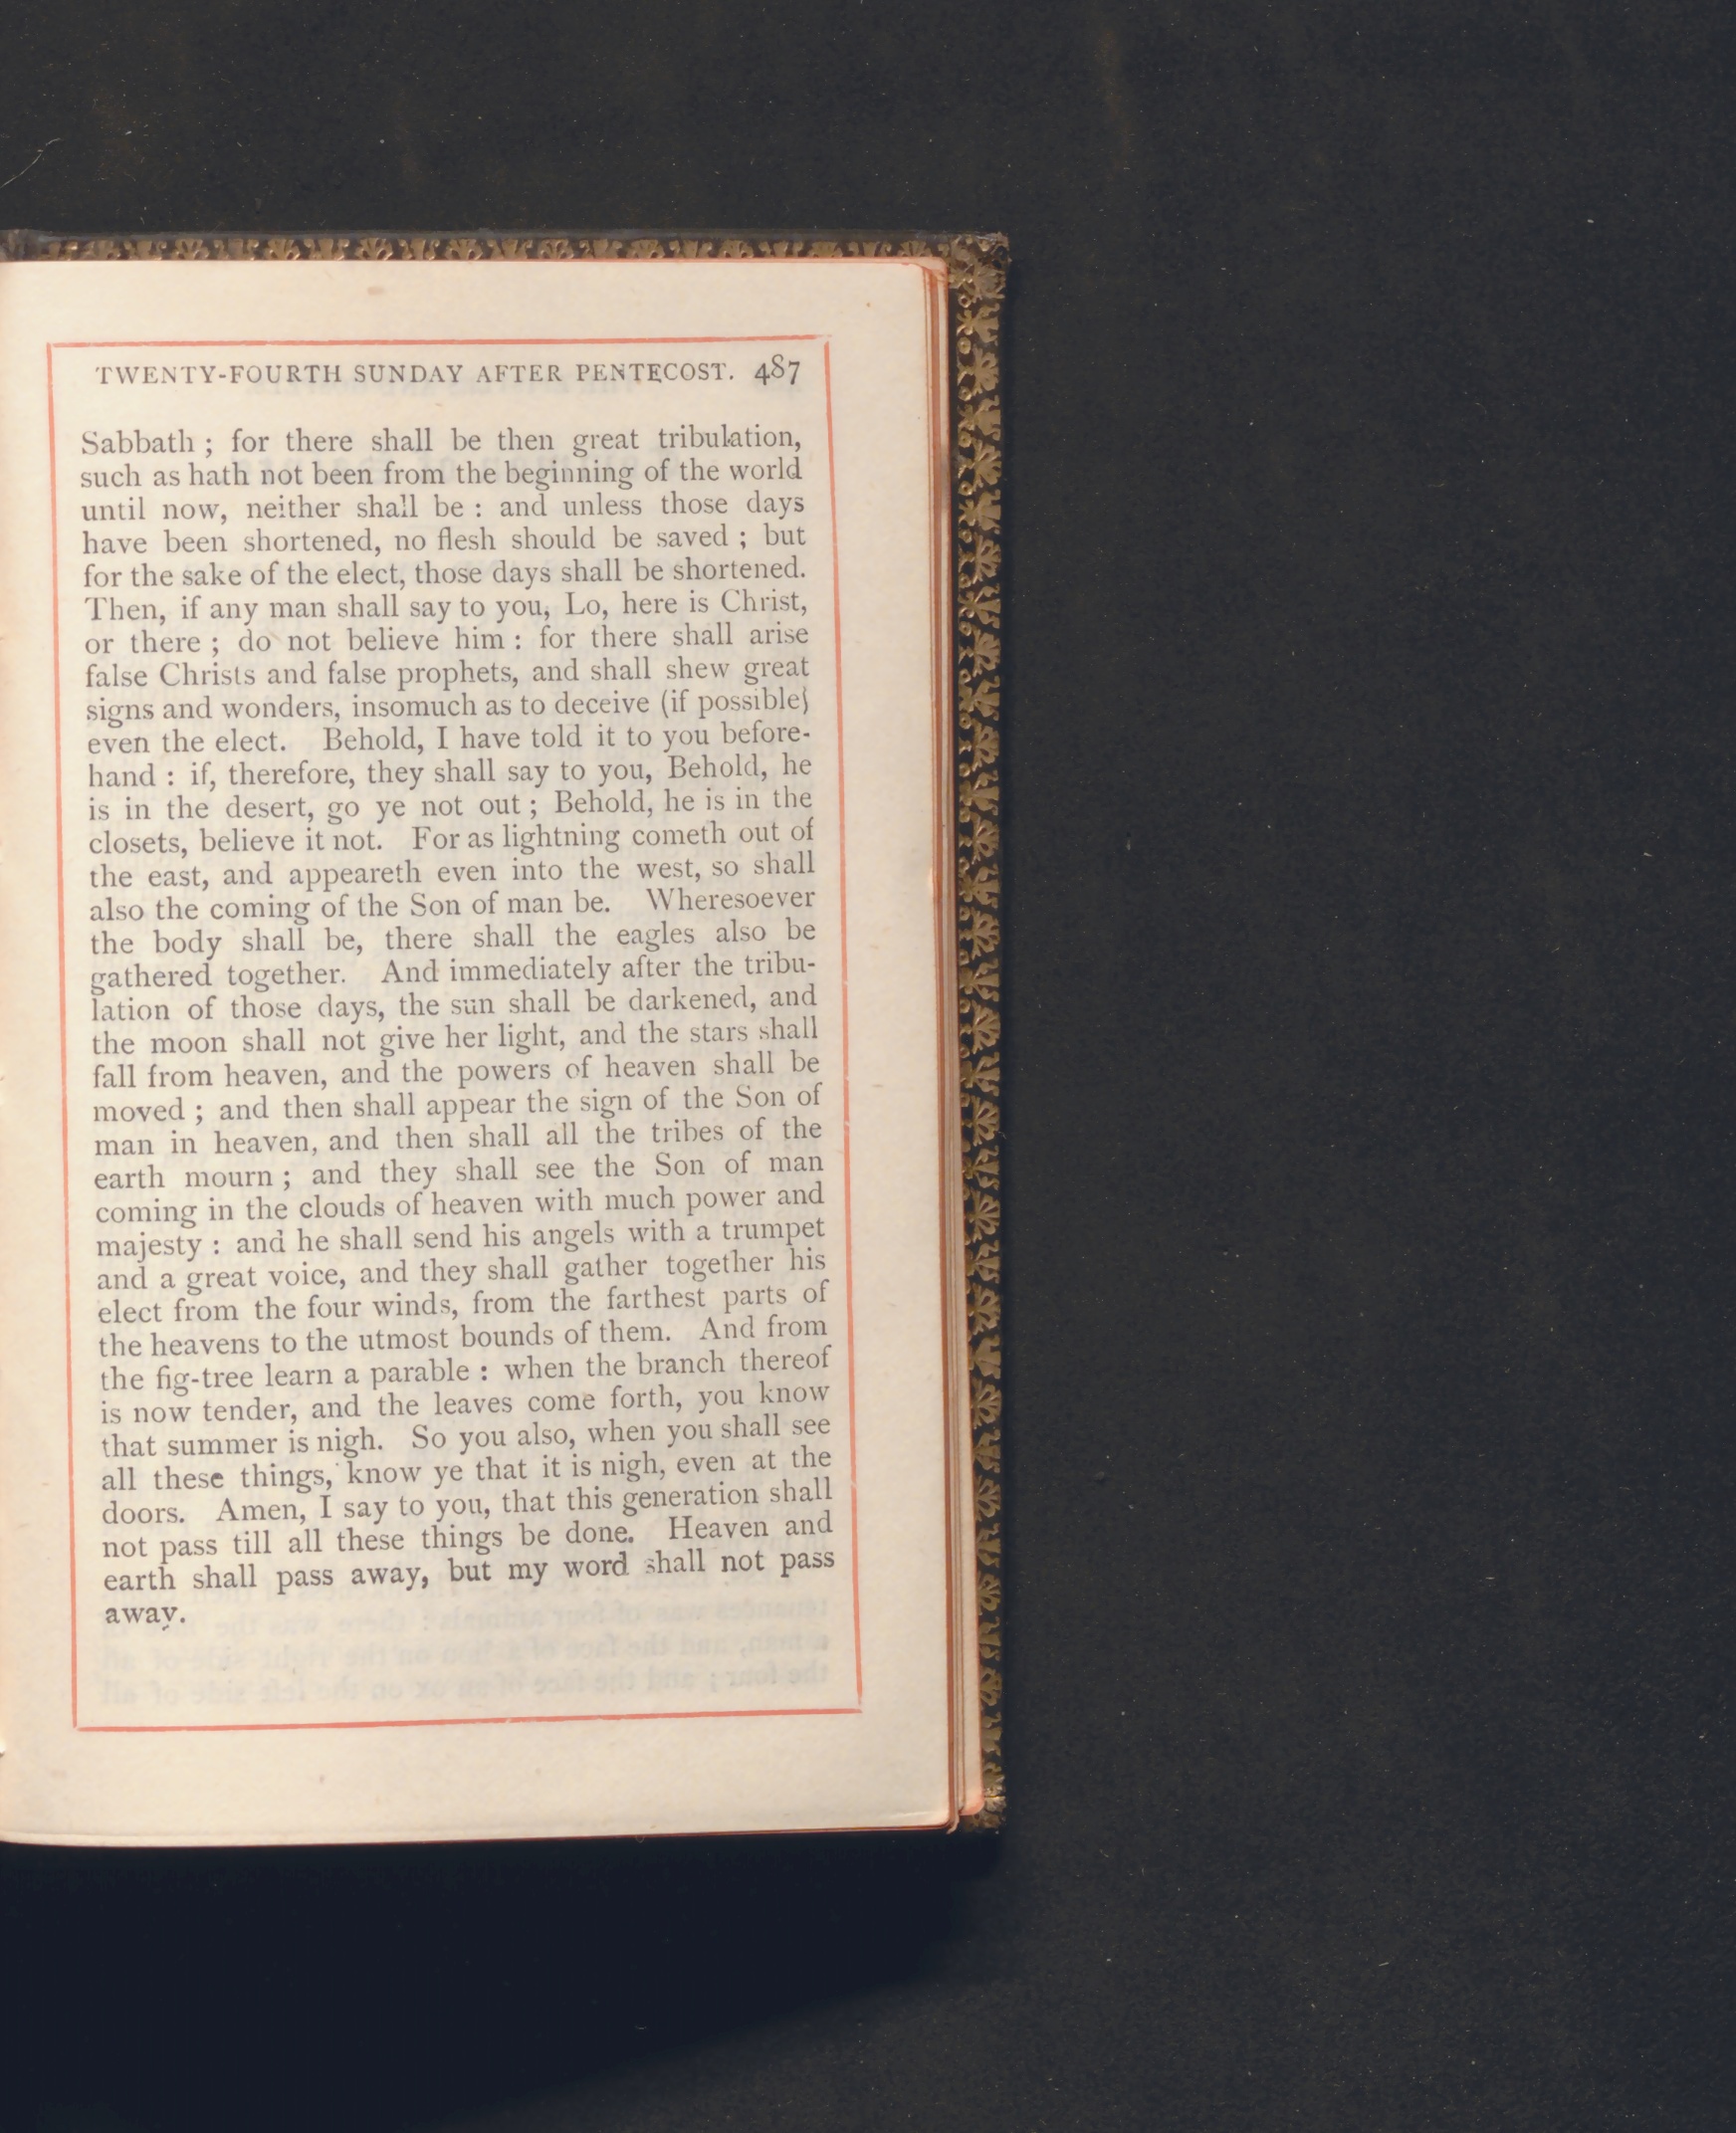 TWENTY-FOURTH SUNDAY AFTER PENTECOST. 487
Sabbath ; for there shall be then great tribulation,
such as hath not been from the beginning of the world
until now, neither shall be : and unless those days
have been shortened, no flesh should be saved ; but
for the sake of the elect, those days shall be shortened.
Then, if any man shall say to you, Lo, here is Christ,
or there ; do not believe him : for there shall arise
false Christs and false prophets, and shall shew great
signs and wonders, insomuch as to deceive (if possible)
even the elect. Behold, I have told it to you before-
hand : if, therefore, they shall say to you, Behold, he
is in the desert, go ye not out ; Behold, he is in the
closets, believe it not. For as lightning cometh out of
the east, and appeareth even into the west, so shall
also the coming of the Son of man be. Wheresoever
the body shall be, there shall the eagles also be
gathered together. And immediately after the tribu-
lation of those days, the sun shall be darkened, and
the moon shall not give her light, and the stars shall
fall from heaven, and the powers of heaven shall be
moved ; and then shall appear the sign of the Son of
man in heaven, and then shall all the tribes of the
earth mourn ; and they shall see the Son of man
coming in the clouds of heaven with much power and
majesty : and he shall send his angels with a trumpet
and a great voice, and they shall gather together his
elect from the four winds, from the farthest parts of
the heavens to the utmost bounds of them. And from
the fig-tree learn a parable : when the branch thereof
is now tender, and the leaves come forth, you know
that summer is nigh. So you also, when you shall see
all these things, know ye that it is nigh, even at the
doors. Amen, I say to you, that this generation shall
not pass till all these things be done. Heaven and
earth shall pass away, but my word shall not pass
away.